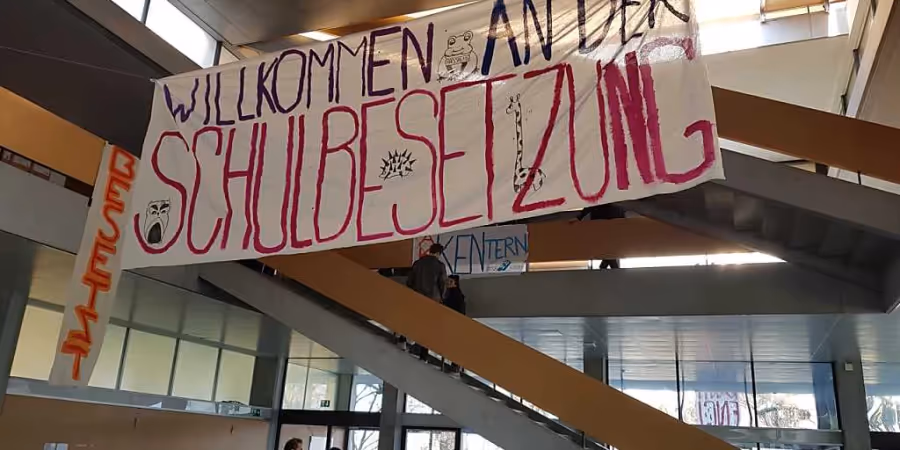 WILLKOMMEN AN DER
SCHULBESETZUNG
BESETZT
KENTERN